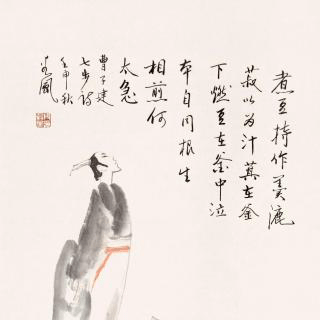 煮豆持作羹漉
菽以为汁萁在釜
下燃豆在釜中泣
本自同根生
相煎何
太急
曹子建
七步诗
壬申秋